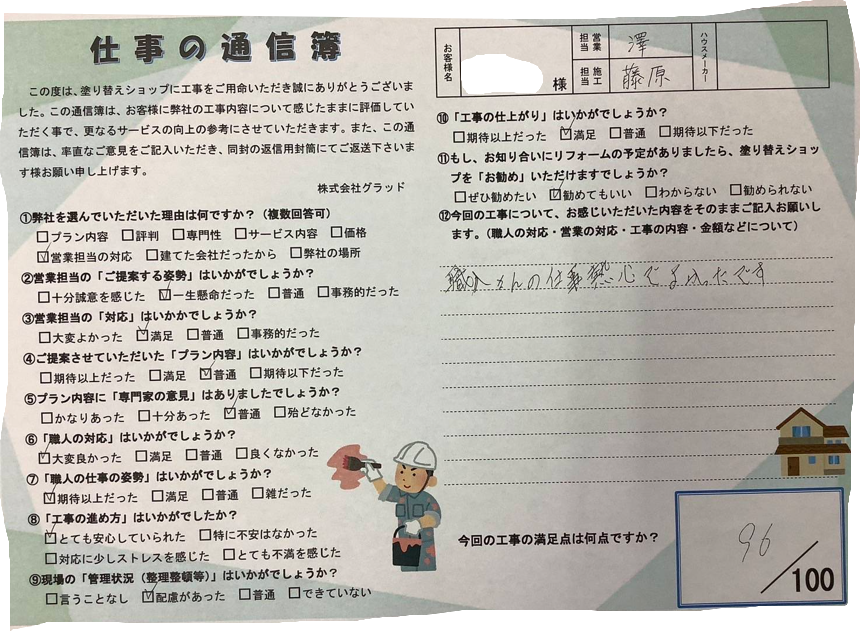 仕事の通信簿
この度は、塗り替えショップに工事をご用命いただき誠にありがとうございま
した。この通信簿は、お客様に弊社の工事内容について感じたままに評価してい
ただく事で、更なるサービスの向上の参考にさせていただきます。また、この通
信簿は、率直なご意見をご記入いただき、同封の返信用封筒にてご返送下さいま
す様お願い申し上げます。
株式会社グラッド
①弊社を選んでいただいた理由は何ですか？（複数回答可）
□プラン内容 □評判 □専門性 □サービス内容 □価格
☑営業担当の対応 □建てた会社だったから □弊社の場所
②営業担当の「ご提案する姿勢」はいかがでしょうか？
□十分誠意を感じた ☑一生懸命だった □普通 □事務的だった
③営業担当の「対応」はいかかでしょうか？
□大変よかった ☑満足 □普通 □事務的だった
④ご提案させていただいた「プラン内容」はいかがでしょうか？
□期待以上だった □満足 ☑普通 □期待以下だった
⑤プラン内容に「専門家の意見」はありましたでしょうか？
□かなりあった □十分あった ☑普通 □殆どなかった
⑥「職人の対応」はいかがでしょうか？
☑大変良かった □満足 □普通 □良くなかった
⑦「職人の仕事の姿勢」はいかがでしょうか？
☑期待以上だった □満足 □普通 □雑だった
⑧「工事の進め方」はいかがでしたか？
☑とても安心していられた □特に不安はなかった
□対応に少しストレスを感じた □とても不満を感じた
⑨現場の「管理状況（整理整頓等）」はいかがでしょうか？
□言うことなし ☑配慮があった □普通 □できていない
お客様名 様 営業担当 澤 ハウスメーカー
施工担当 藤原
⑩「工事の仕上がり」はいかがでしょうか？
□期待以上だった ☑満足 □普通 □期待以下だった
⑪もし、お知り合いにリフォームの予定がありましたら、塗り替えショッ
プを「お勧め」いただけますでしょうか？
□ぜひ勧めたい ☑勧めてもいい □わからない □勧められない
⑫今回の工事について、お感じいただいた内容をそのままご記入お願いし
ます。（職人の対応・営業の対応・工事の内容・金額などについて）
職人さんの仕事熱心でよかったです
今回の工事の満足点は何点ですか？
96/100